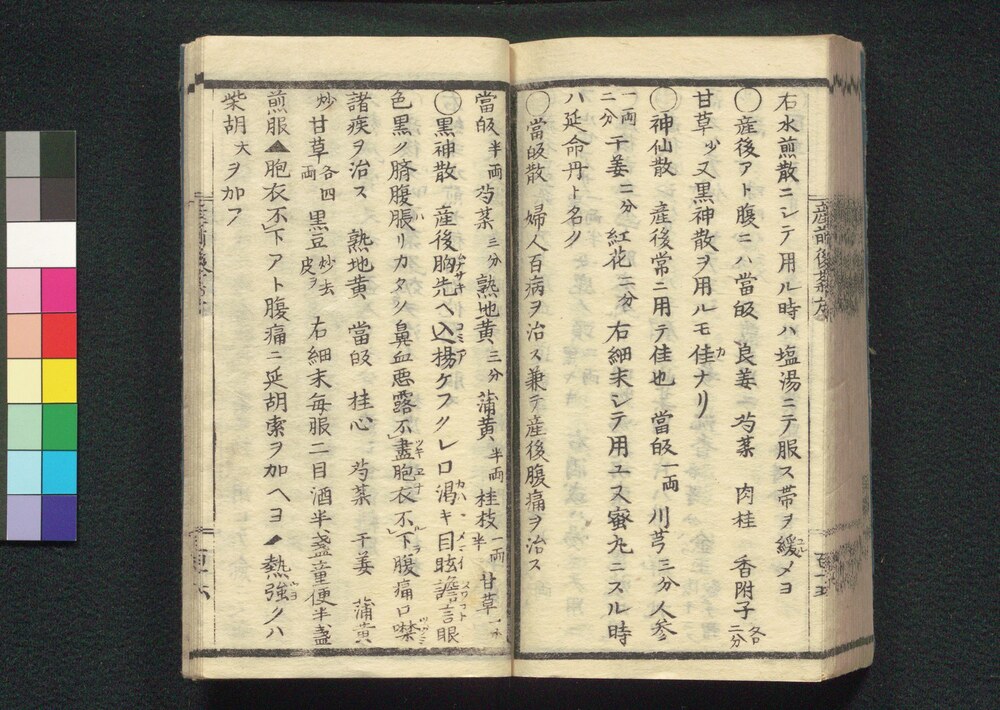 右水煎散ニシテ用ル時ハ塩湯ニテ服ス帯ヲ緩メヨ
〇産後アト腹ニハ當皈 良姜 芍薬 肉桂 香附子各二分
甘草少又黒神散ヲ用ルモ佳ナリ
〇神仙散 産後常ニ用テ佳也 當皈一両 川芎三分人参
一両二分干姜二分 紅花二分右細末シテ用ユ又蜜丸ニスル時
ハ延命丹ト名ク
〇當皈散 婦人百病ヲ治ス兼テ産後腹痛ヲ治ス
當皈半両芍薬三分熟地黄三分蒲黄半両桂枝一両半甘草
〇黒神散 産後胸先ヘ込揚ケフクレ口渇キ目眩譫言眼
色黒ク臍腹脹リカタク鼻血悪露不盡胞衣不下腹痛口噤
諸疾ヲ治ス 熟地黄 當皈 桂心 芍薬 干姜 蒲黄
炒甘草各四両黒豆炒去皮ヲ 右細末毎服二目酒半盞童便半盞
煎服▲胞衣不下アト腹痛ニ延胡索ヲ加ヘヨ 熱強クハ
柴胡大ヲ加フ